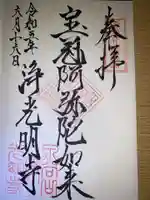 奉拝
宝冠阿弥陀如来
浄光明寺
令和五年
六月十六日